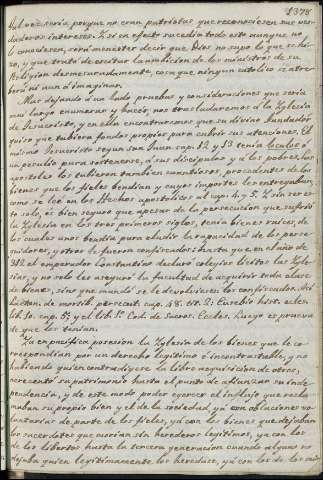 1378
tal vez seria porque no eran patriotas que reconociesen sus ver-
daderos intereses. Y si en efecto sucedió todo esto aunque no
lo conociesen, será menester decir que Dios no supo lo que se hi-
zo, y que trató de escitar la ambicion de los ministros de su
Religion desmesuradamente, cosa que ningun catolico se atre-
berá ni aun á imaginar.
Mas dejando á un lado pruebas y consideraciones que seria
muy largo enumerar y hacer, nos trasladaremos á la Yglesia
de Jesucristo, y en ella encontraremos que su divino fundador
quiso que tubiera fondos propios para cubrir sus atenciones. El
mismo Jesucristo segun San Juan cap. 12 y 13 tenia loculos ó
un peculio para sostenerse, á sus discipulos y á los pobres, los
apostoles los tubieron tambien cuantiosos, procedentes de los
bienes que los fieles bendian y cuyos importes les entregaban
como se lee en los Hechos apostolicos al cap. 4 y 5. Y sin ser es-
to solo, es bien seguro que apesar de la persecucion que sufrió
la Yglesia en los tres primeros siglos, tenia bienes raices, de
los cuales unos bendia para eludir la rapacidad de los perse-
guidores, y otros le fueron confiscados hasta que en el año de
312 el emperador Constantino declaró colegios licitos las Ygle-
sias, y no solo les aseguró la facultad de adquirir toda clase
de bienes, sino que mandó se le devolviesen los confiscados. Asi
Lactan. de mortib. persecut. cap. 48. tit. 2. Eusebio hist. eclen
lib. 10. cap. 5. y el lib. 1º Cod. de Sacros. Eccles. Luego es prueva
de que los tenian.
Ya en pacifica posesion la Yglesia de los bienes que le co-
rrespondian por un derecho legitimo é incontrastable, y no
habiendo quien contradijese la libre adquisicion de otros,
acrecentó su patrimonio hasta el punto de afianzar su inde-
pendencia, y de este modo poder egercer el influjo que recla-
maban su propio bien y el de la sociedad, ya con oblaciones vo-
luntarias de parte de los fieles, ya con los bienes que dejaban
los sacerdotes que morian sin herederos legitimos, ya con los
de los libertos hasta la tercera generacion cuando alguno no
dejaba quien legitimamente los heredase, ya con los de los